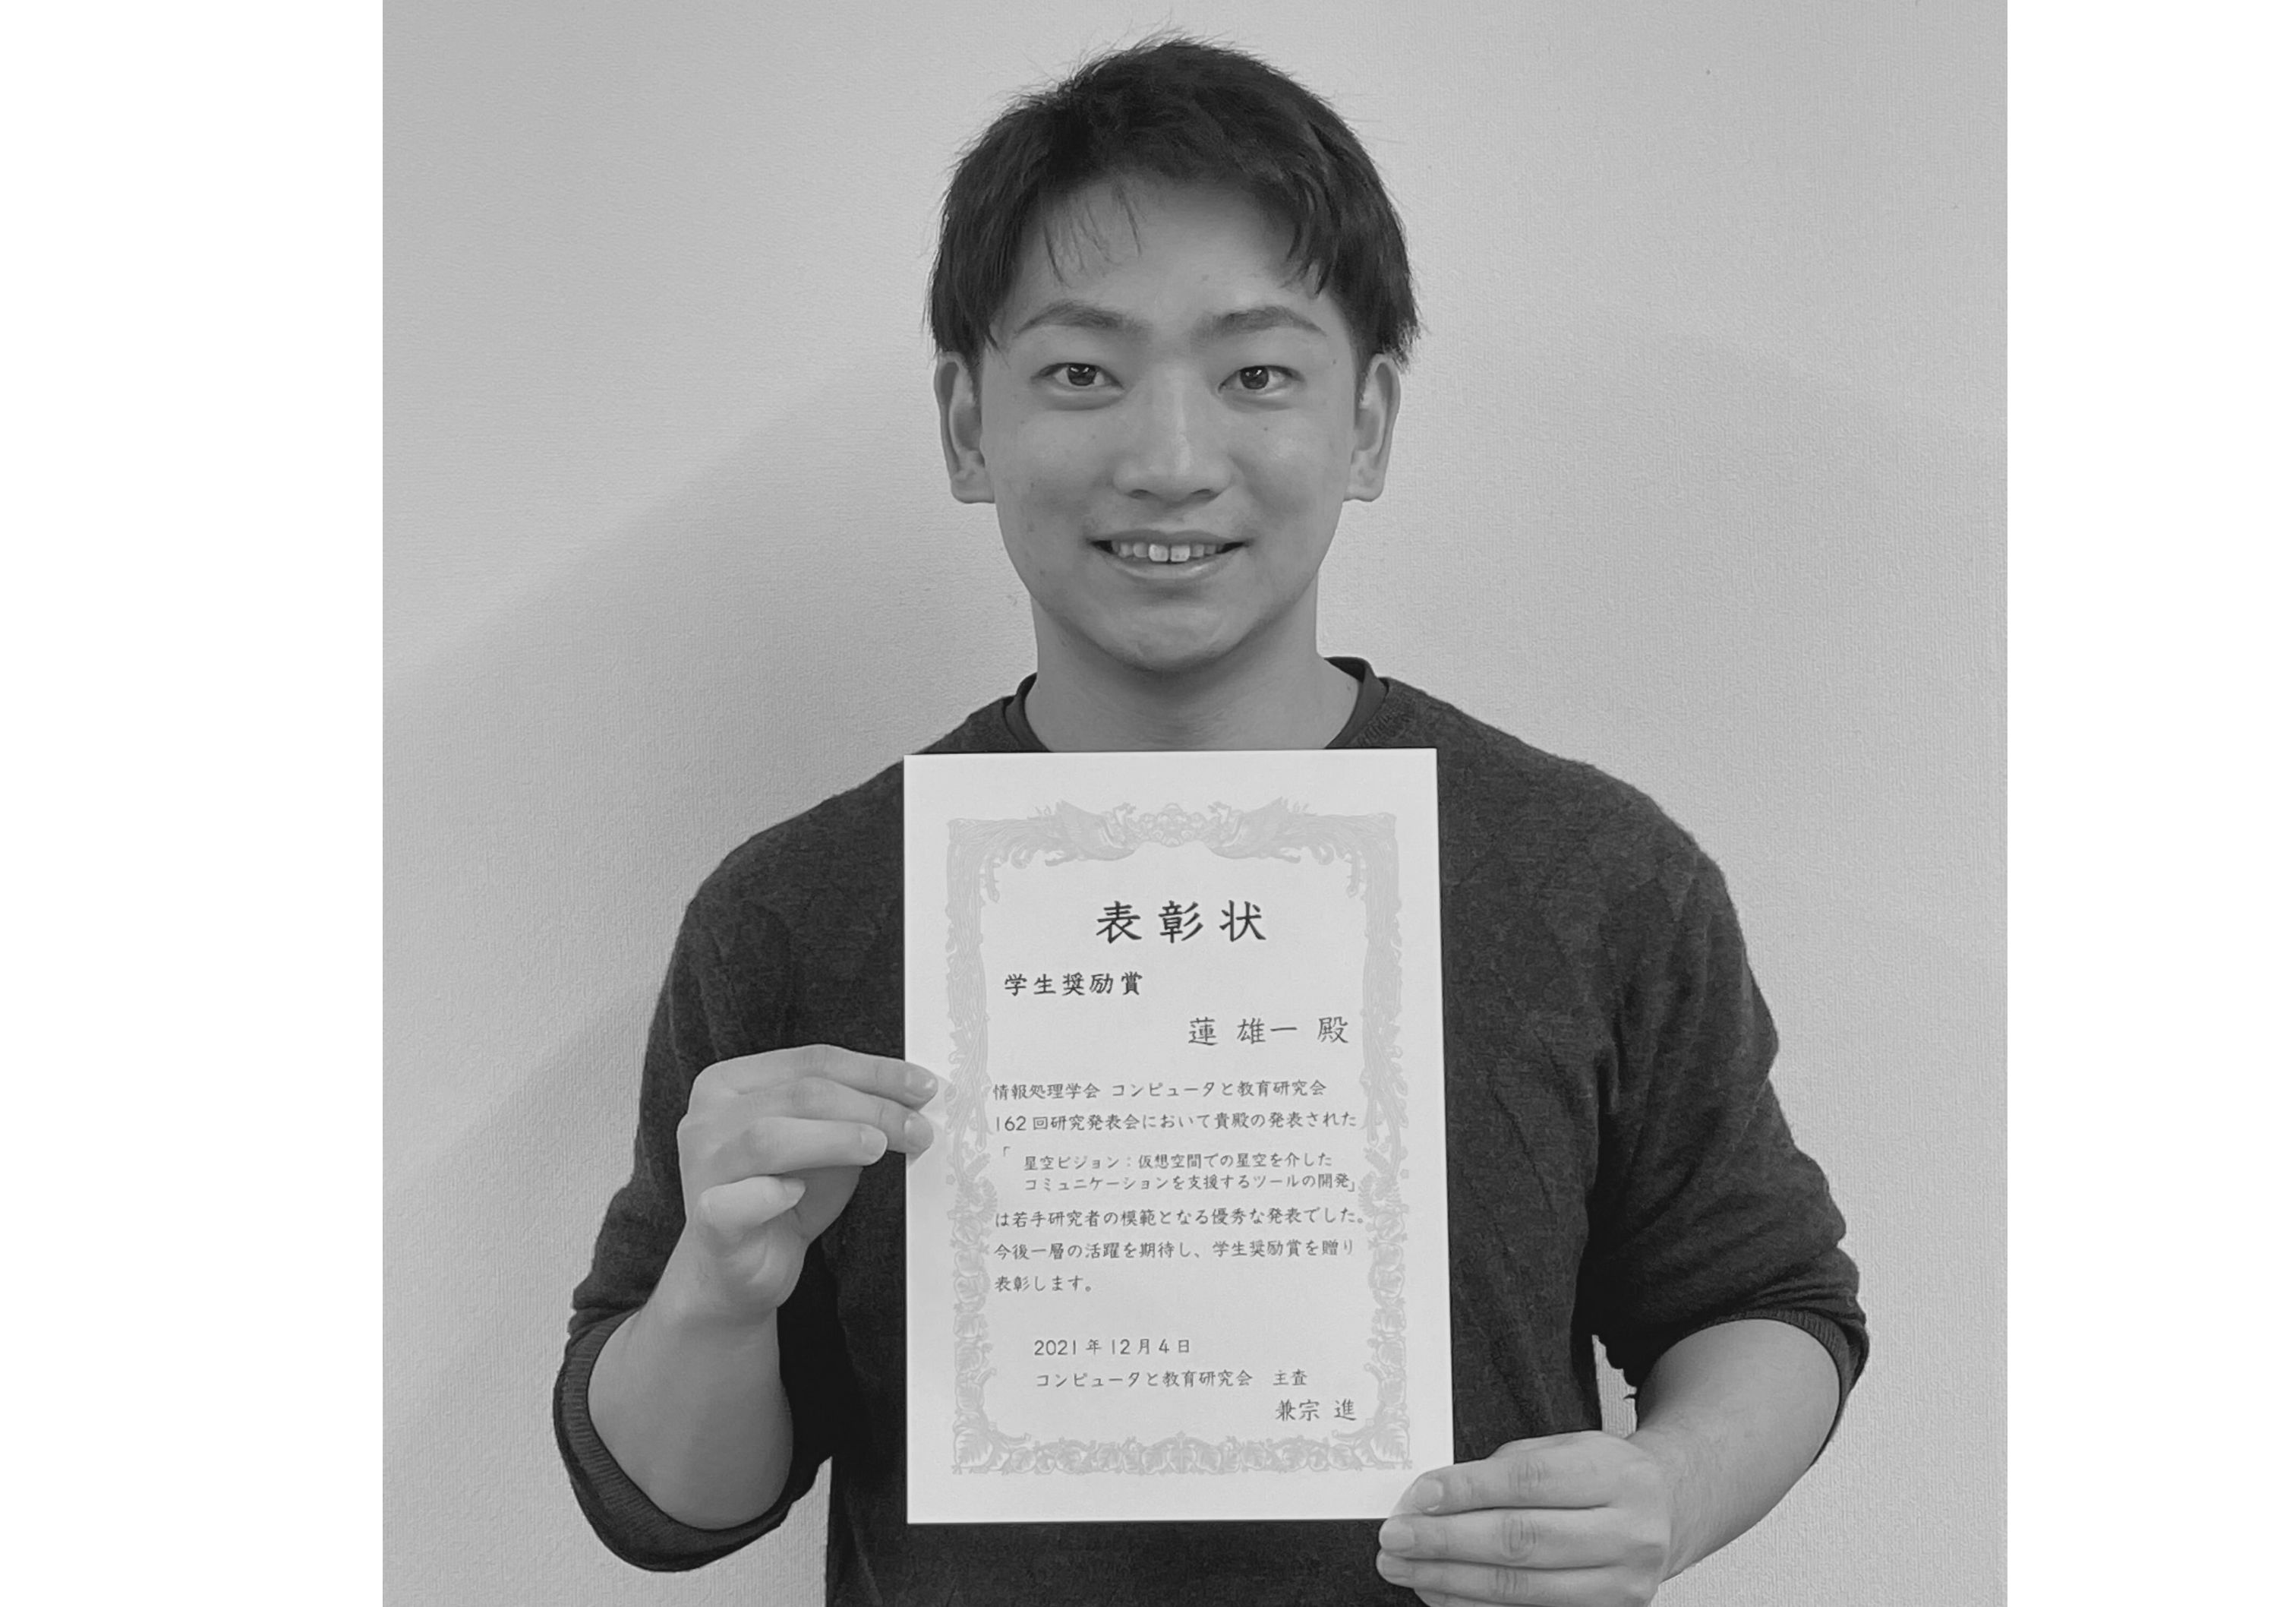 表彰状
学生奨励賞
蓮 雄一 殿
情報処理学会 コンピュータと教育研究会
162回研究発表会において貴殿の発表された
「星空ビジョン：仮想空間での星空を介した
コミュニケーションを支援するツールの開発」
は若手研究者の模範となる優秀な発表でした。
今後一層の活躍を期待し、学生奨励賞を贈り
表彰します。
2021年12月4日
コンピュータと教育研究会 主査
兼宗 進